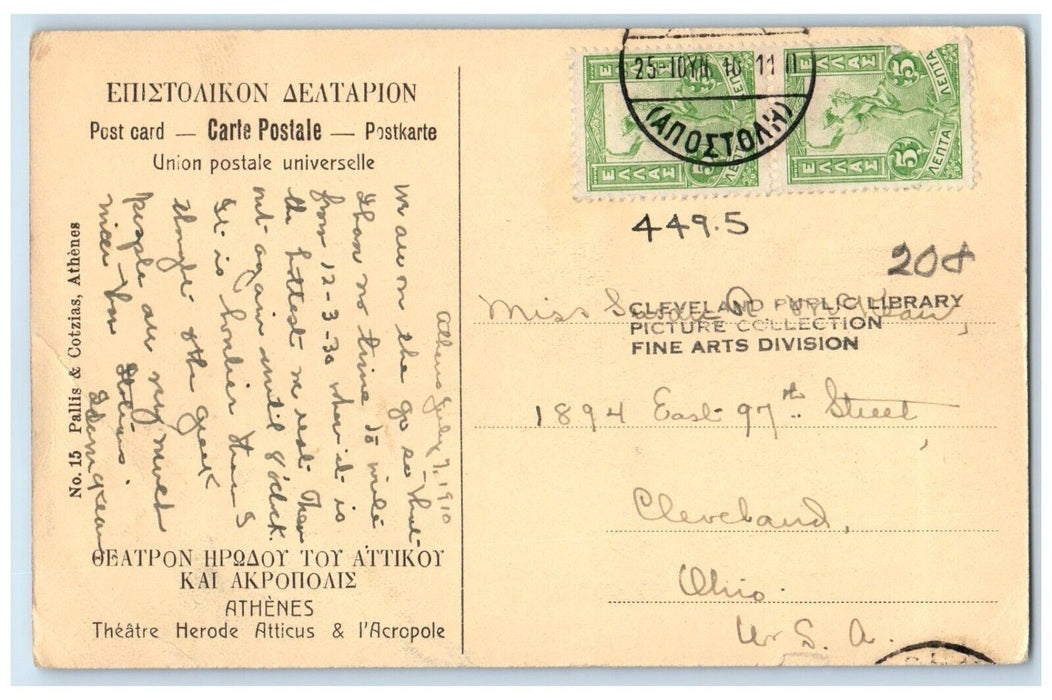 ΕΠΙΣΤΟΛΙΚΟΝ ΔΕΛΤΑΡΙΟΝ
Post card — Carte Postale — Postkarte
Union postale universelle
Athens July 7, 1910
We are on the go so that
I have no time to write
from 12-3-30 when it is
the hottest we rest. Then
out again until 8 o'clock.
It is lovelier than I
thought & the Greek
people are very much
nicer than
No. 15 Pallis & Cotzias, Athènes
ΘΕΑΤΡΟΝ ΗΡΩΔΟΥ ΤΟΥ ΑΤΤΙΚΟΥ
ΚΑΙ ΑΚΡΟΠΟΛΙΣ
ATHÈNES
Théâtre Herode Atticus & l'Acropole
25-ΙΟΥΝ 10 11 Π
(ΑΠΟΣΤΟΛΗ)
ΕΛΛΑΣ
5 ΛΕΠΤΑ
ΕΛΛΑΣ
5 ΛΕΠΤΑ
449.5
208
Miss
CLEVELAND PUBLIC LIBRARY
PICTURE COLLECTION
FINE ARTS DIVISION
1894 East 97th Street,
Cleveland,
Ohio.
U. S. A.